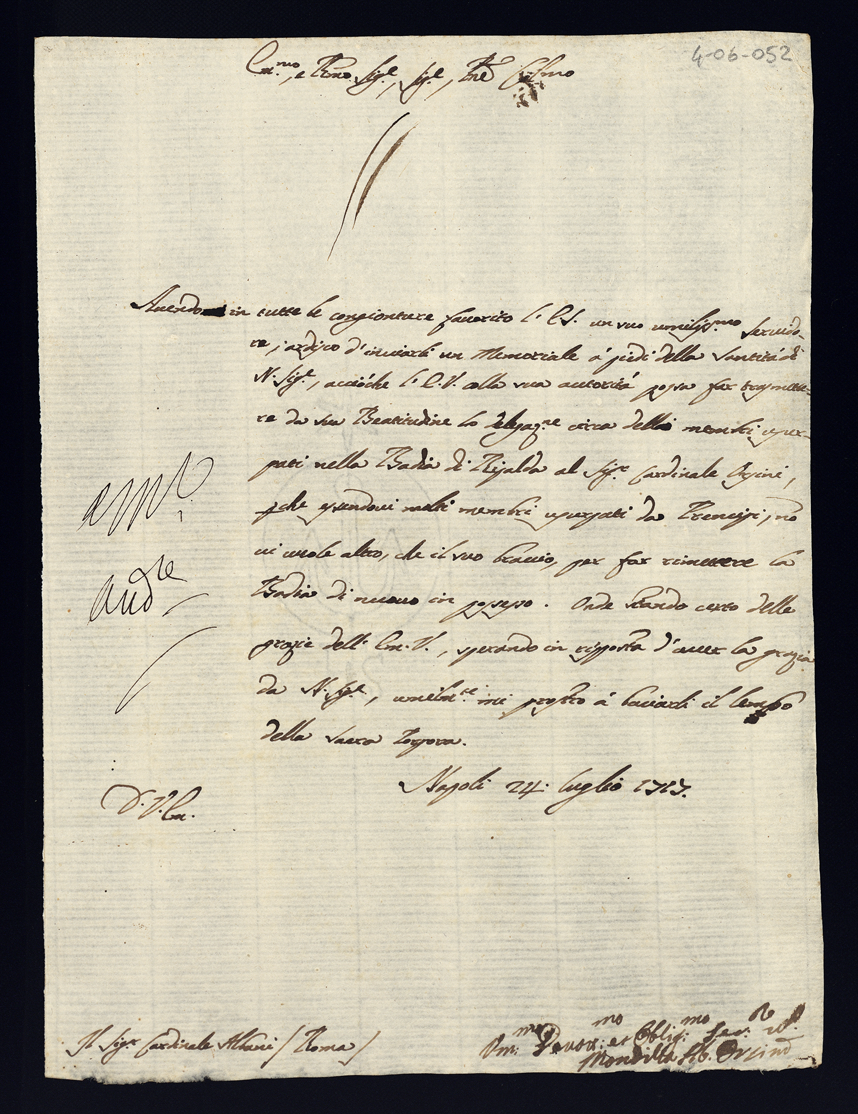 4-06-052
Em.mo, e Rmo Sig.e, Sig.e, Pne Colmo
Avendo in tutte le congionture favorito l'E.V. un suo umiliss.mo Servido-
re, ardisco d'inviarli un Memoriale a' piedi della Santità di
N. Sig.e, acciòche l'E.V. colla sua autorità possa far trasmette-
re da sua Beatitudine la delegaz.ne circa delli membri usur-
pati nella Badia di Rijalda al Sig.r Cardinale Orsini,
che essendovi molti membri usurpati da Prencipi, nō
vi vuole altro, che il suo braccio, per far rimettere la
Badia di nuovo in possesso. Onde stando certo delle
grazie dell' Em. V., sperando in risposta d'aver la grazia
da N. Sig.e, umilm.te mi prostro á baciarli il lembo
della Sacra Porpora.
Napoli 24. luglio 1717.
D. V. Em.
Il Sig.r Cardinale Albani / Roma /
Um.mo Devot.mo et Oblig.mo Ser.re
Mondilla Orsino